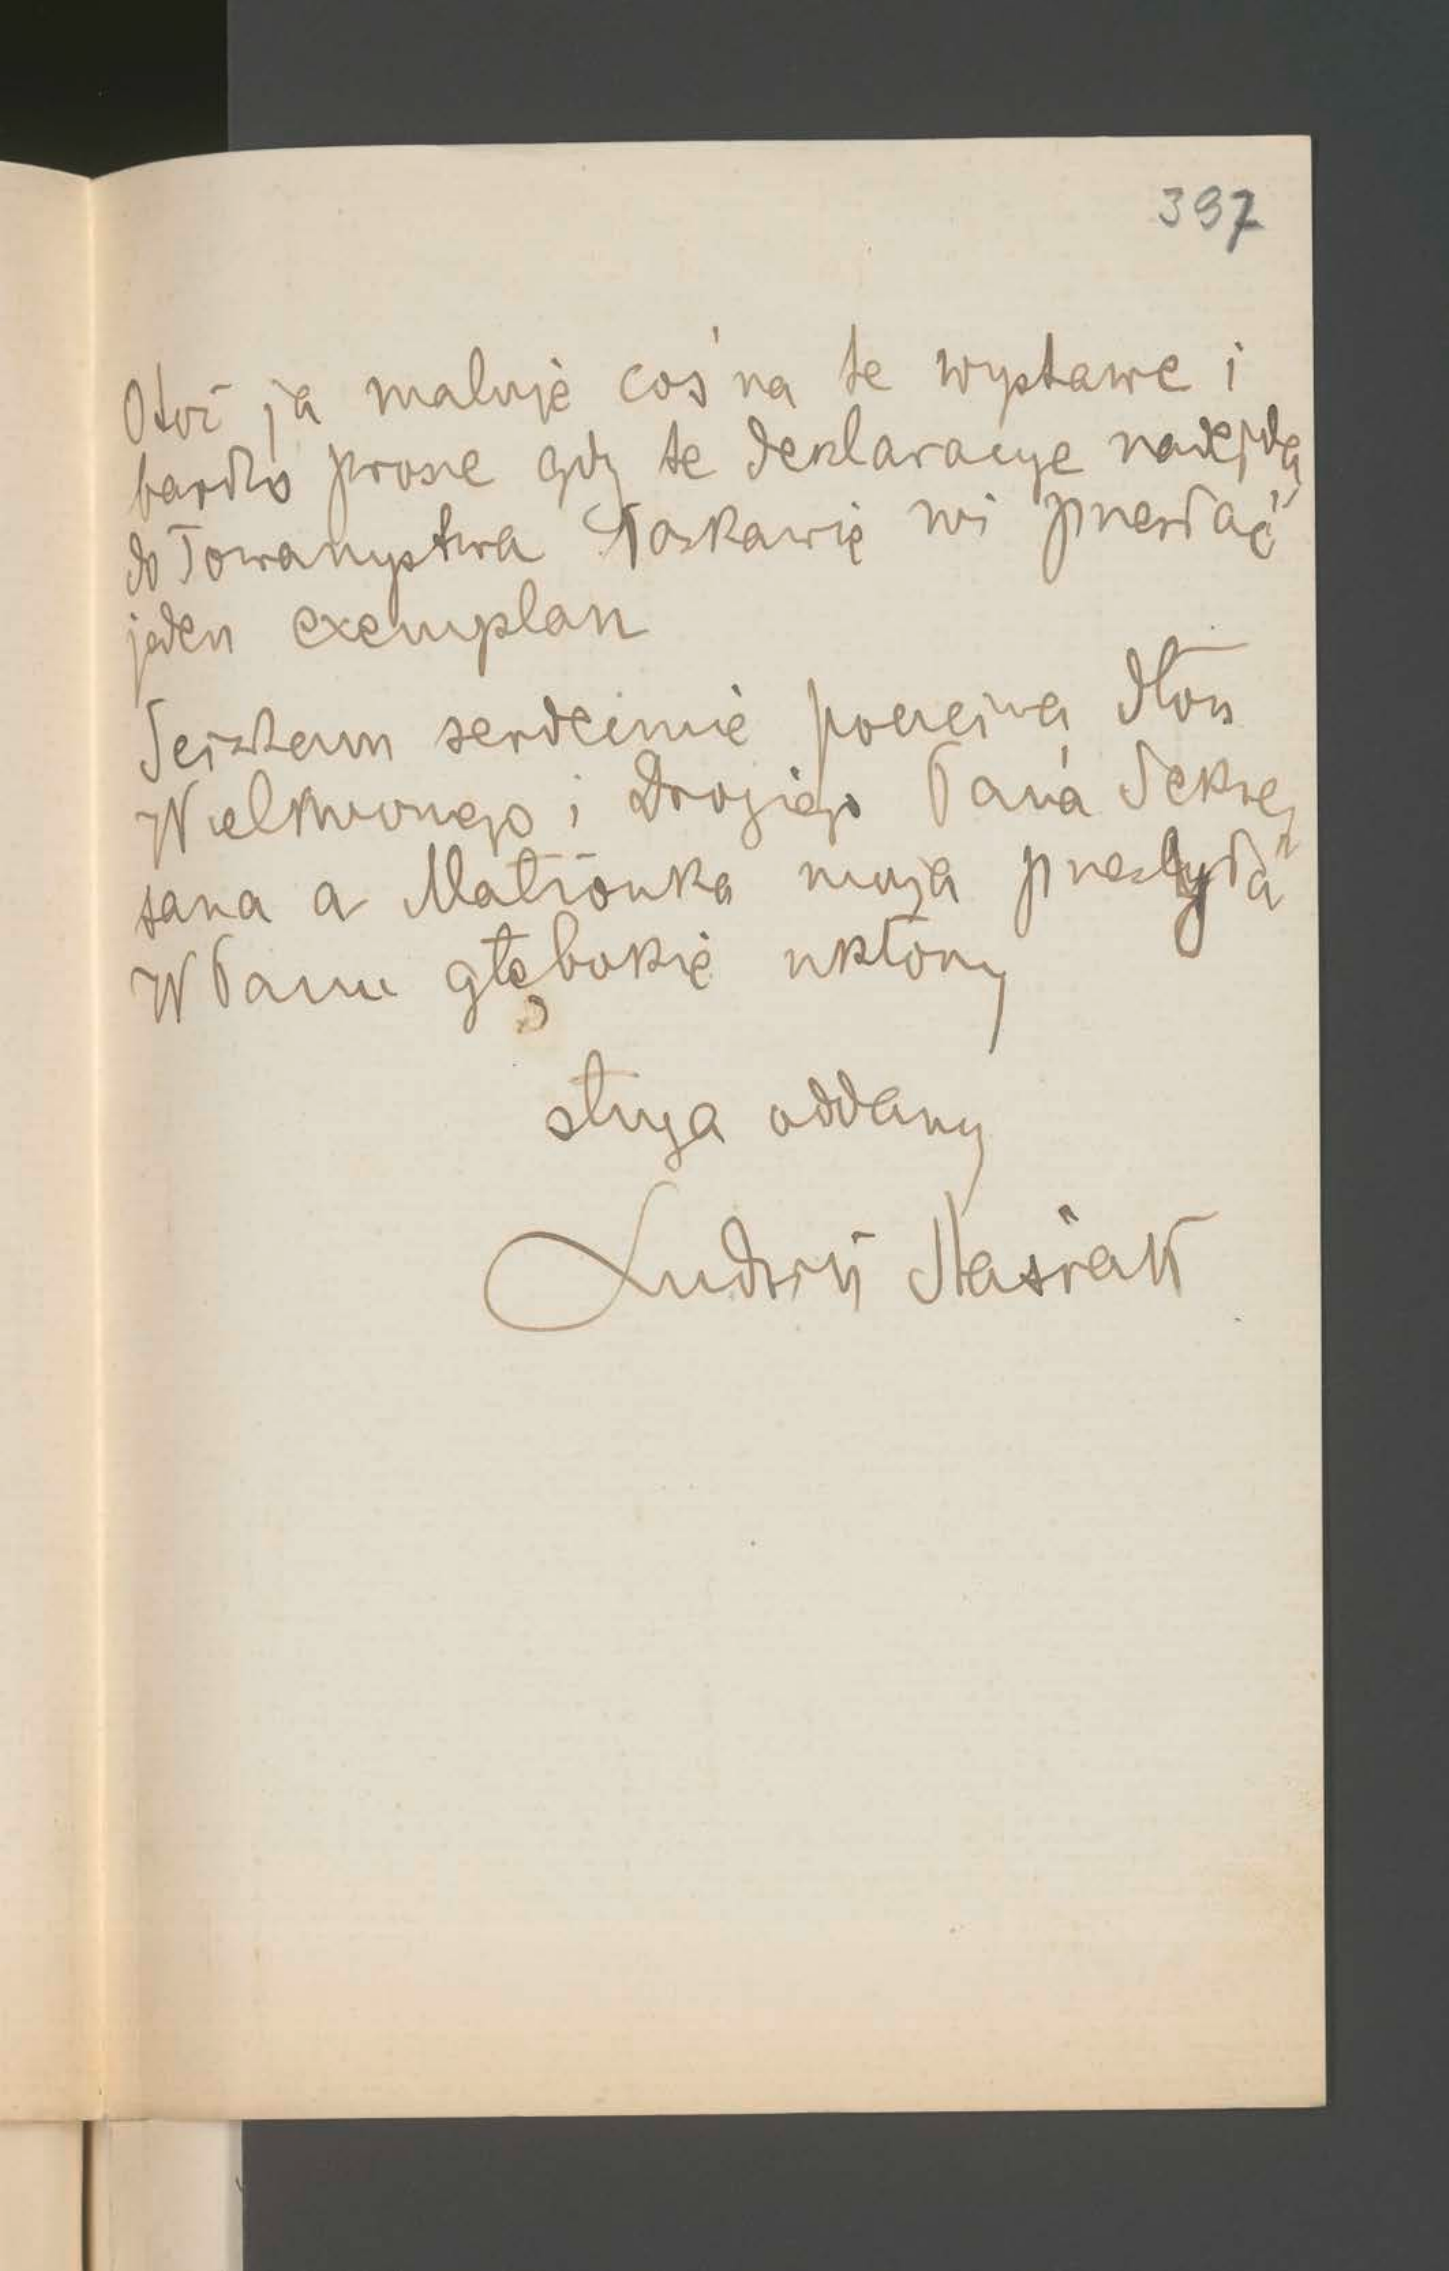 397
Otóż ja maluję coś na te wystawe i
bardzo prosze gdy te deklaracye nadejdą
do Towarzystwa łaskawie mi przesłać
jeden exemplarz
Sciskam serdecznie poczciwą dłoń
Wielmożnego i Drogiego Pana Sekre
tarza a Małżonka moja przesyła
W Panu głębokie ukłony
sługa oddany
Ludwik Stasiak